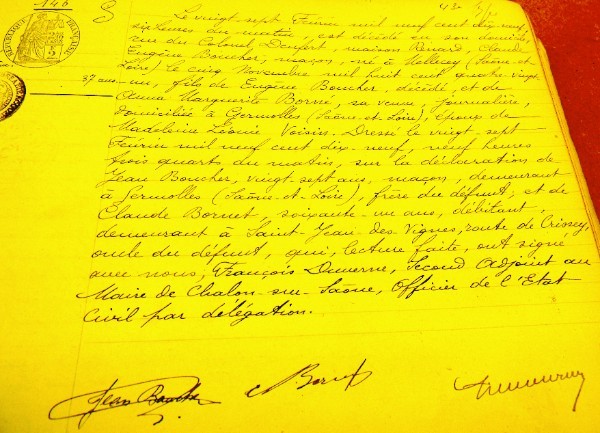 146
RÉPUBLIQUE FRANÇAISE
37 ans
Le vingt-sept Février mil neuf cent dix-neuf,
six heures du matin, est décédé en son domicile
rue du Colonel Denfert, maison Renard, Claude
Eugène Boucher, maçon, né à Mellecey (Saône-et-
Loire) le cinq Novembre mil huit cent quatre-vingt-
un, fils de Eugène Boucher, décédé, et de
Anna Marguerite Borné, sa veuve, journalière,
domiciliée à Germolles (Saône-et-Loire), époux de
Madeleine Léonie Voisin. Dressé le vingt-sept
Février mil neuf cent dix-neuf, neuf heures
trois quarts du matin, sur la déclaration de
Jean Boucher, vingt-sept ans, maçon, demeurant
à Germolles (Saône-et-Loire), frère du défunt, et de
Claude Bornet, soixante-un ans, débitant,
demeurant à Saint-Jean-des-Vignes, route de Crissey,
oncle du défunt, qui, lecture faite, ont signé
avec nous, François Duverne, Second Adjoint au
Maire de Chalon-sur-Saône, Officier de l'Etat
Civil par délégation.
Jean Boucher